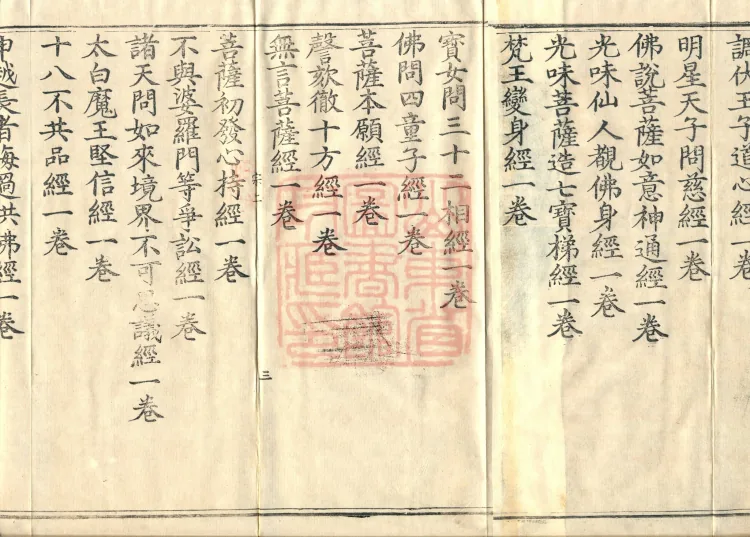 調伏王子道心經一卷
明星天子問慈經一卷
佛說菩薩如意神通經一卷
光味仙人覩佛身經一卷
光味菩薩造七寶梯經一卷
梵王變身經一卷
寶女問三十二相經一卷
佛問四童子經一卷
菩薩本願經一卷
謦欬徹十方經一卷
無言菩薩經一卷
三
菩薩初發心持經一卷
不與婆羅門等爭訟經一卷
諸天問如來境界不可思議經一卷
太白魔王堅信經一卷
十八不共品經一卷
申越長者悔過供佛經一卷